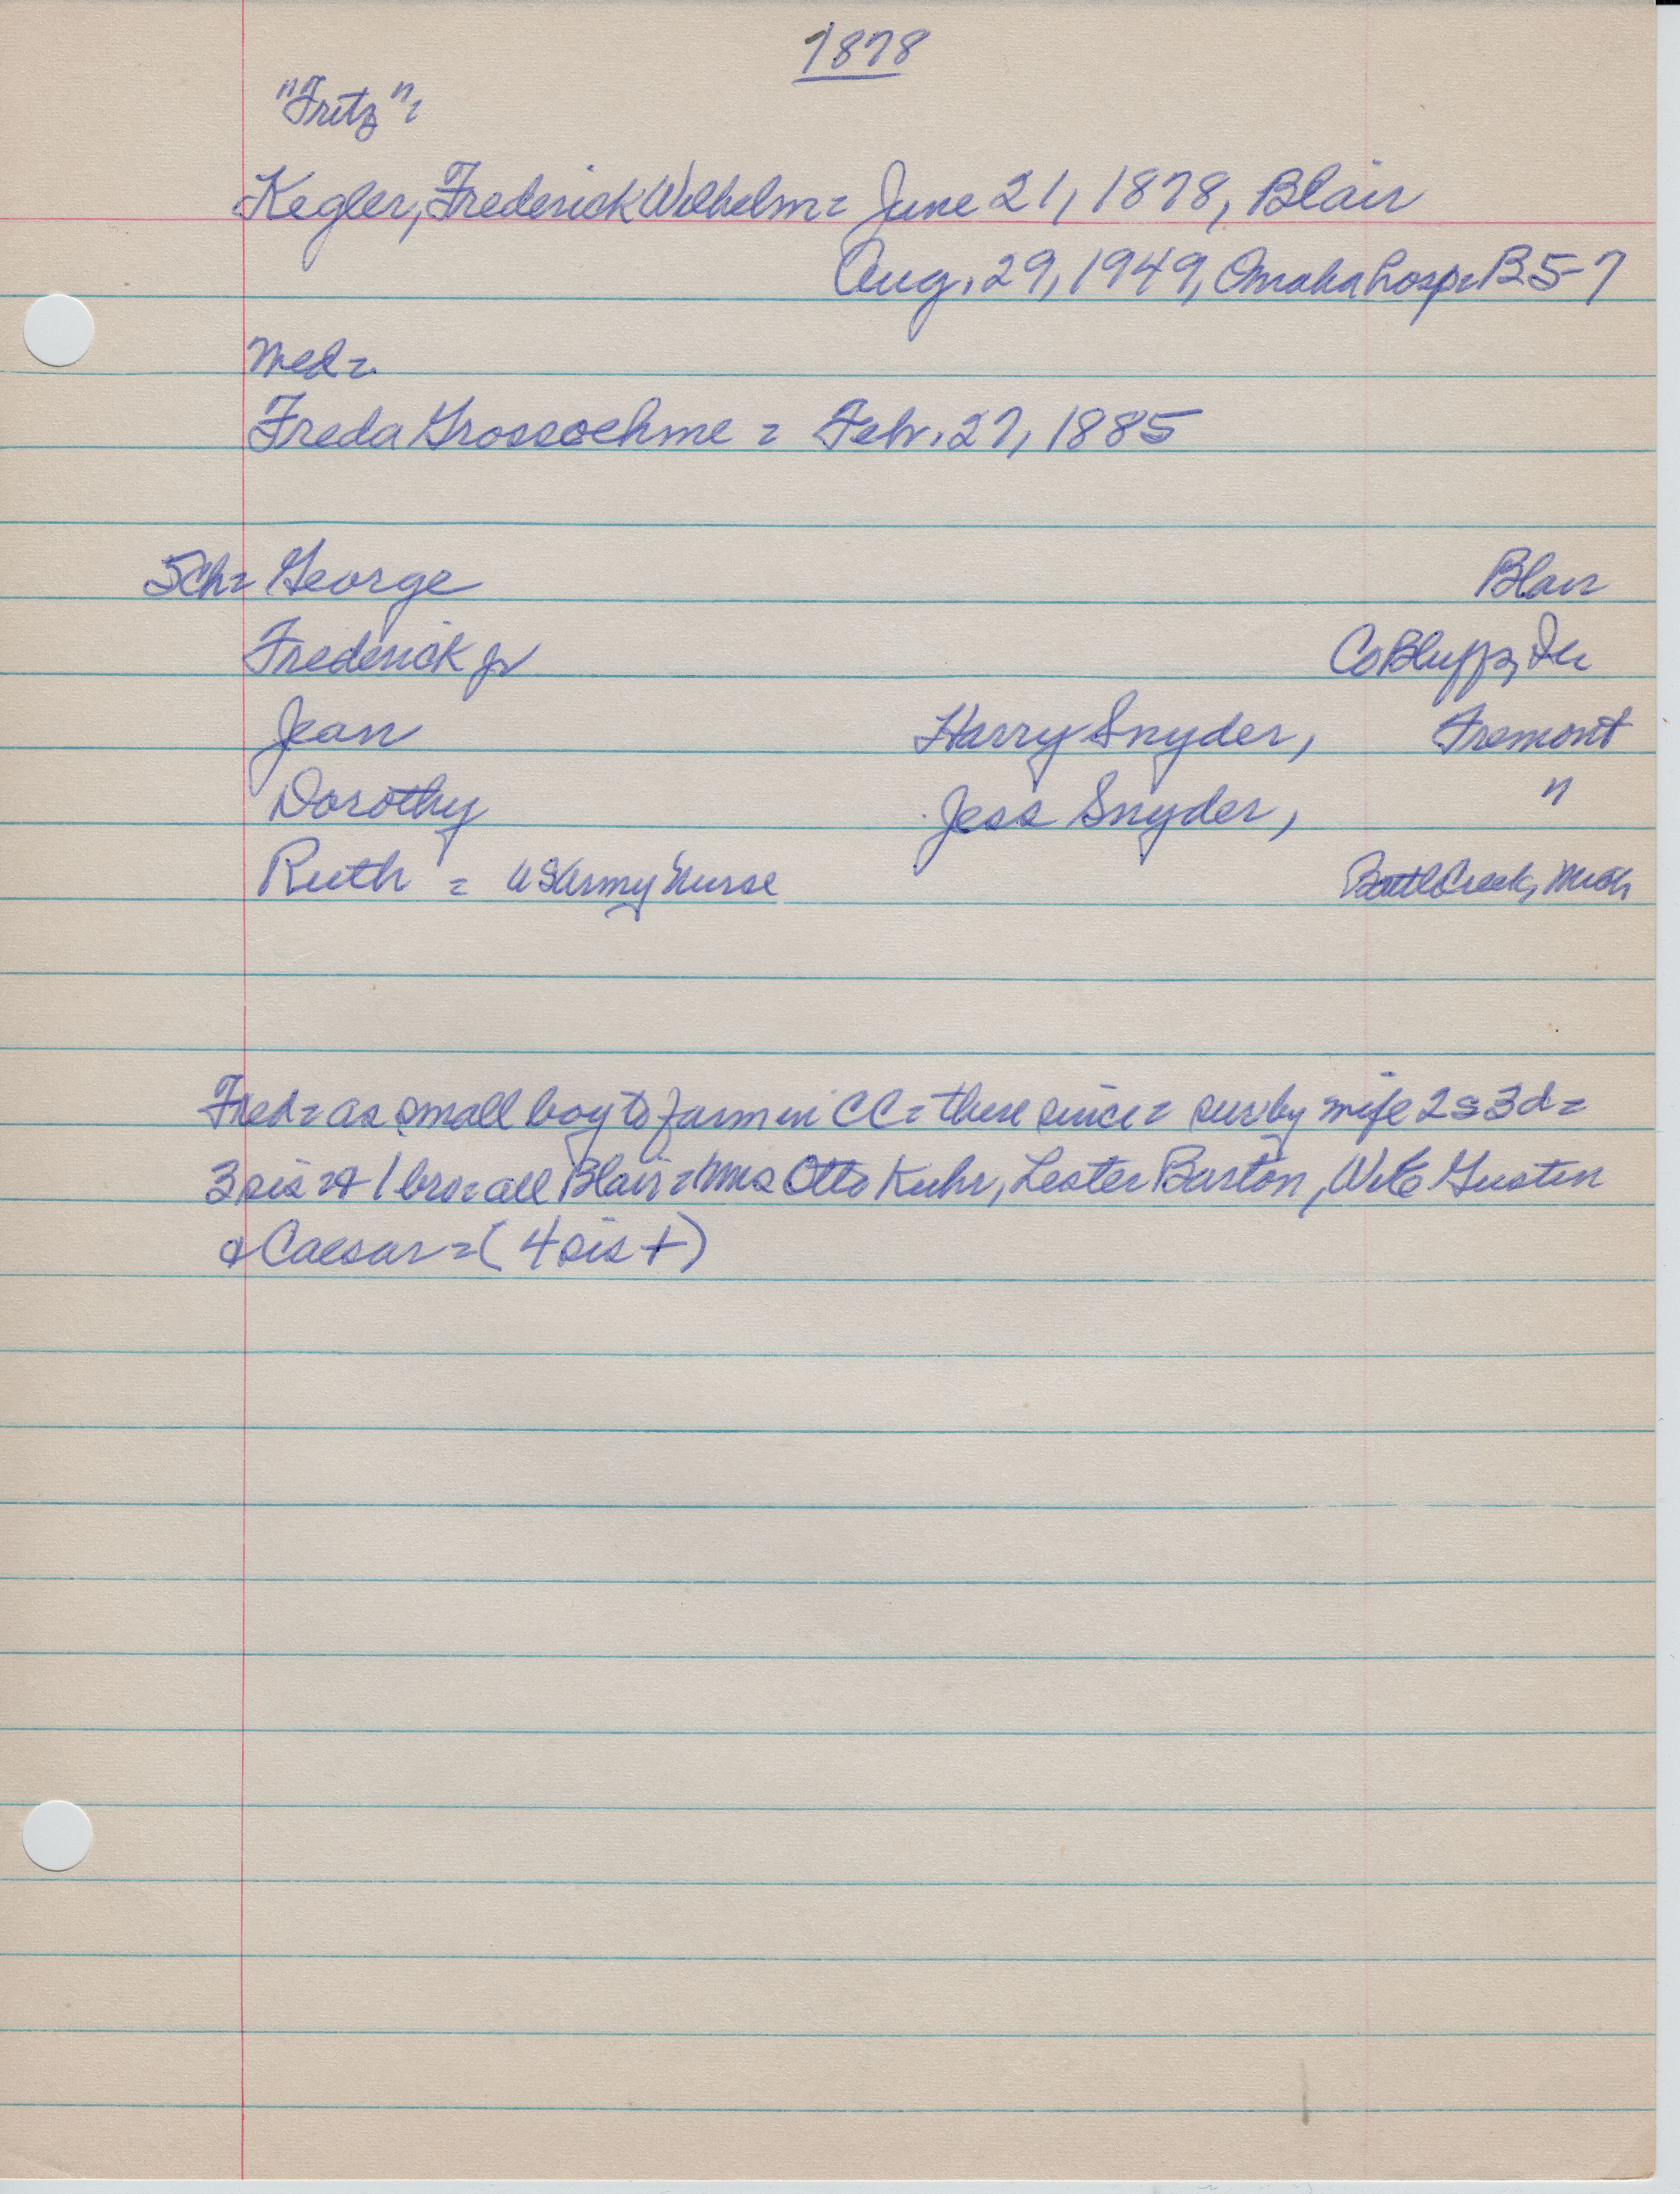 1878
"Fritz" =
Kegler, Frederick Wilhelm = June 21, 1878, Blair
Aug. 29, 1949, Omaha hosp = B5-7
Med =
Freda Grossoehme = Febr. 27, 1885
5ch = George Blair
Frederick Jr Co Bluffs, Ia
Jean Harry Snyder, Fremont
Dorothy Jess Snyder, "
Ruth = US Army Nurse Battl Creek, Mich
Fred = as small boy to farm in CC = there since = sur by wife 2s 3d =
3 sis & 1 bro = all Blair = Mrs Otto Kuhr, Lester Barton, Gustin
& Caesar = (4 sis +)